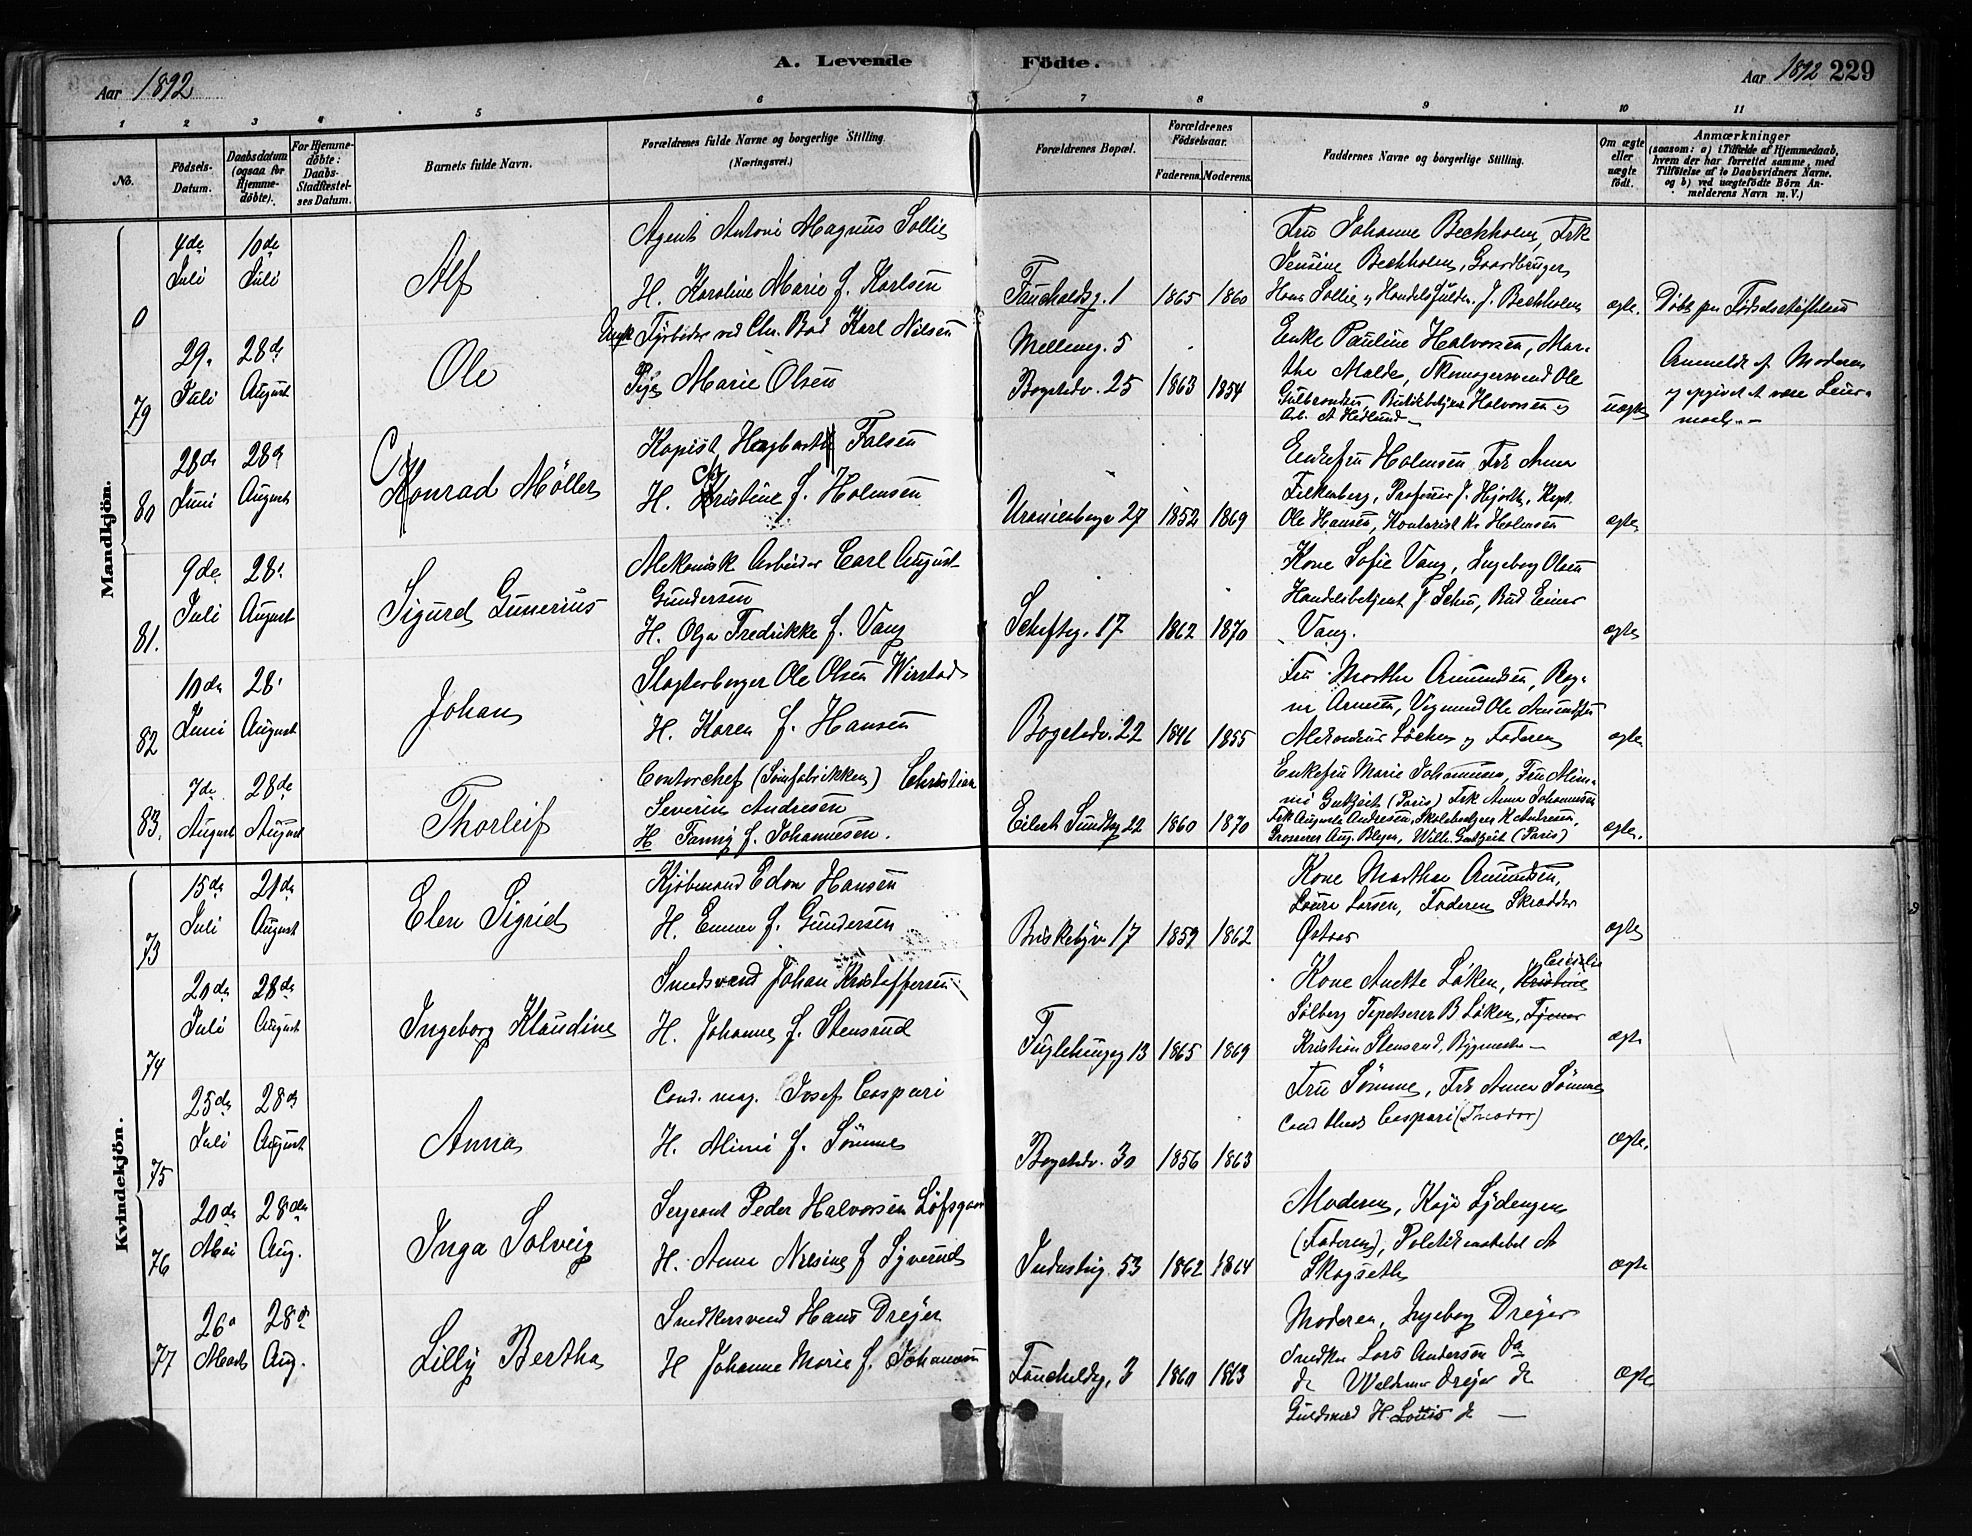 Aar 1892
A. Levende
Födte.
Aar 1892 229
1 2 3 4 5 6 7 8 9 10 11
No.
Födsels-
Datum.
Daabsdatum
(ogsaa for
Hjemme-
döbte).
For Hjemme-
döbte:
Daabs-
Stadfæstel-
ses Datum.
Barnets fulde Navn.
Forældrenes fulde Navne og borgerlige Stilling.
(Næringsvei.)
Forældrenes Bopæl.
Forældrenes
Födselsaar.
Faderens. Moderens.
Faddernes Navne og borgerlige Stilling.
Om ægte
eller
uægte
födt.
Anmærkninger
(saasom: a) i Tilfælde af Hjemmedaab,
hvem der har forrettet samme, med
Tilföielse af to Daabsvidners Navne.
og b) ved uægtefödte Börn An-
melderens Navn m.V.)
Mandkjön.
0
4de Juli
10de Juli
Alf
Agent Antoni Magnus Sollie
H. Karoline Marie f. Karlsen
Fauchaldsg. 1
1865 1860
Fru Johanne Bechholm, Frk
Jensine Bechholm, Gaardbruger
Hans Sollie og Handelsfuldm. J. Bechholm
ægte.
Döbt paa Fødselsstiftelsen
79
29. Juli
28de August
Ole
Ungk Fyrböder ved Chr. Bad Karl Nilsen
Pige Marie Olsen
Melleng. 5
Bogstadv. 25
1863 1854
Enke Pauline Halvorsen, Mar-
the Malde, Skomagersvend Ole
Gulbrandsen, Butikbetjent Halvorsen og
Arb. A Hedlund
uægte
Anmeldt af Moderen
og opgivet at være Leier-
maal
80
28de Juni
28de August
Conrad Möller
Kopist Hagbarth Falsen
H. Christine f. Holmsen
Uranienborgv 27
1852 1869
Enkefru Holmsen Frk Anna
Falkenberg, Professor J. Hjorth, Kapt.
Ole Hansen, Kontorist Kr Holmsen
ægte
81.
9de Juli
28. August
Sigurd Gunerius
Mekanisk Arbeider Carl August
Gundersen
H. Olga Fredrikke f. Vang
Schultzg. 17
1862 1870
Kone Sofie Vang, Ingeborg Olsen
Handelsbetjent J. Schu, Bud Einar
Vang.
ægte
82
10de Juni
28. August
Johan
Slagterborger Ole Olsen Wirstad
H. Karen f. Hansen
Bogstadv. 22
1846 1855
Fru Marthe Amundsen, Rag-
na Arnesen, Vognmand Ole Amundsen
Löchen og Faderen
ægte
83.
7de August
28de August
Thorleif
Contorchef (Sömfabrikken) Christian
Severin Andresen
H Fanny f. Johannesen.
Eilert Sundtsg 22
1860 1870
Enkefru Marie Johannesen, Fru Mim-
mi Gutzeit (Paris) Frk Anna Johannesen
Frk Augusta Andresen, Skolebestyrer K Andresen,
Grosserer Aug. Blegen, Wilh. Gutzeit (Paris)
ægte.
Kvindekjön.
73
15de Juli
21de August
Elen Sigrid
Kjöbmand Edon Hansen
H. Emma f. Gundersen
Briskebyv 17
1859 1862
Kone Marthe Amundsen,
Laura Larsen, Faderen Skrædder
Østaas
ægte
74
20de Juli
28de August
Ingeborg Klaudine
Smedsvend Johan Kristoffersen
H. Johanne f. Stensrud
Fuglehaugg 13
1865 1869
Kone Anette Löken, Kristine Cecilie
Solberg Tapetserer B Löken, Tjener
Kristian Stensrud, Bygmester
ægte
75
25de Juli
28de August
Anna
Cand. mag. Josef Caspari
H. Mimi f. Sömme
Bogstadv. 30
1856 1863
Fru Sömme, Frk Anna Sömme
Cand theol Caspari (Theodor)
ægte.
76
20de Mai
28de Aug.
Inga Solveig
Sergeant Peder Halvorsen Löfsgaard
H. Anna Nilsine f Syverud
Industrig. 53
1862 1864
Moderen, Kaja Lydengen
(Faderen), Politikonstabel A
Skogseth
ægte
77
26. Marts
28de Aug.
Lilly Bertha
Snedkersvend Hans Dreyer
H Johanne Marie f. Johansen
Fauchaldsg. 3
1860 1863
Moderen, Ingeborg Dreyer
Snedker Lars Andersen do
do Waldemar Dreyer do
Guldsmed H. Louis do
ægte